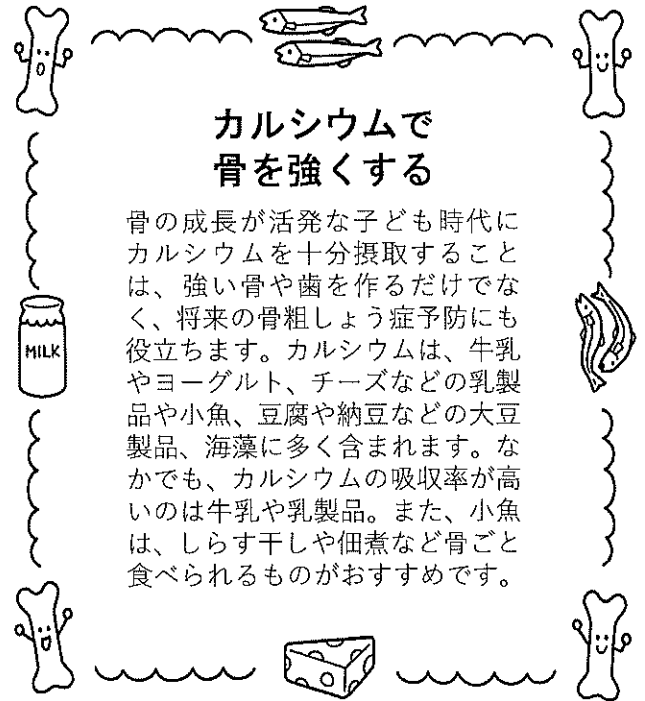 カルシウムで
骨を強くする
骨の成長が活発な子ども時代に
カルシウムを十分摂取すること
は、強い骨や歯を作るだけでな
く、将来の骨粗しょう症予防にも
役立ちます。カルシウムは、牛乳
やヨーグルト、チーズなどの乳製
品や小魚、豆腐や納豆などの大豆
製品、海藻に多く含まれます。な
かでも、カルシウムの吸収率が高
いのは牛乳や乳製品。また、小魚
は、しらす干しや佃煮など骨ごと
食べられるものがおすすめです。
MILK